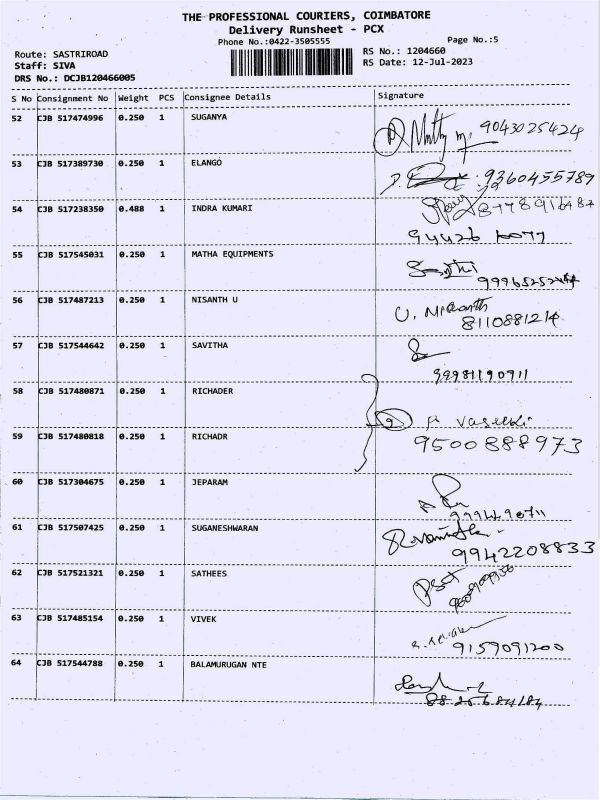 THE PROFESSIONAL COURIERS, COIMBATORE
Delivery Runsheet - PCX
Phone No.:0422-3505555 Page No.:5
Route: SASTRIROAD RS No.: 1204660
Staff: SIVA RS Date: 12-Jul-2023
DRS No.: DCJB120466005
S No Consignment No Weight PCS Consignee Details Signature
52 CJB 517474996 0.250 1 SUGANYA
9043025424
53 CJB 517389730 0.250 1 ELANGO
9360455789
54 CJB 517238350 0.488 1 INDRA KUMARI
94426
55 CJB 517545031 0.250 1 MATHA EQUIPMENTS
56 CJB 517487213 0.250 1 NISANTH U
U. Nisanth
8110881214
57 CJB 517544642 0.250 1 SAVITHA
58 CJB 517480871 0.250 1 RICHADER
2
59 CJB 517480818 0.250 1 RICHADR
9500888973
60 CJB 517304675 0.250 1 JEPARAM
61 CJB 517507425 0.250 1 SUGANESHWARAN
9942208833
62 CJB 517521321 0.250 1 SATHEES
63 CJB 517485154 0.250 1 VIVEK
9159091200
64 CJB 517544788 0.250 1 BALAMURUGAN NTE